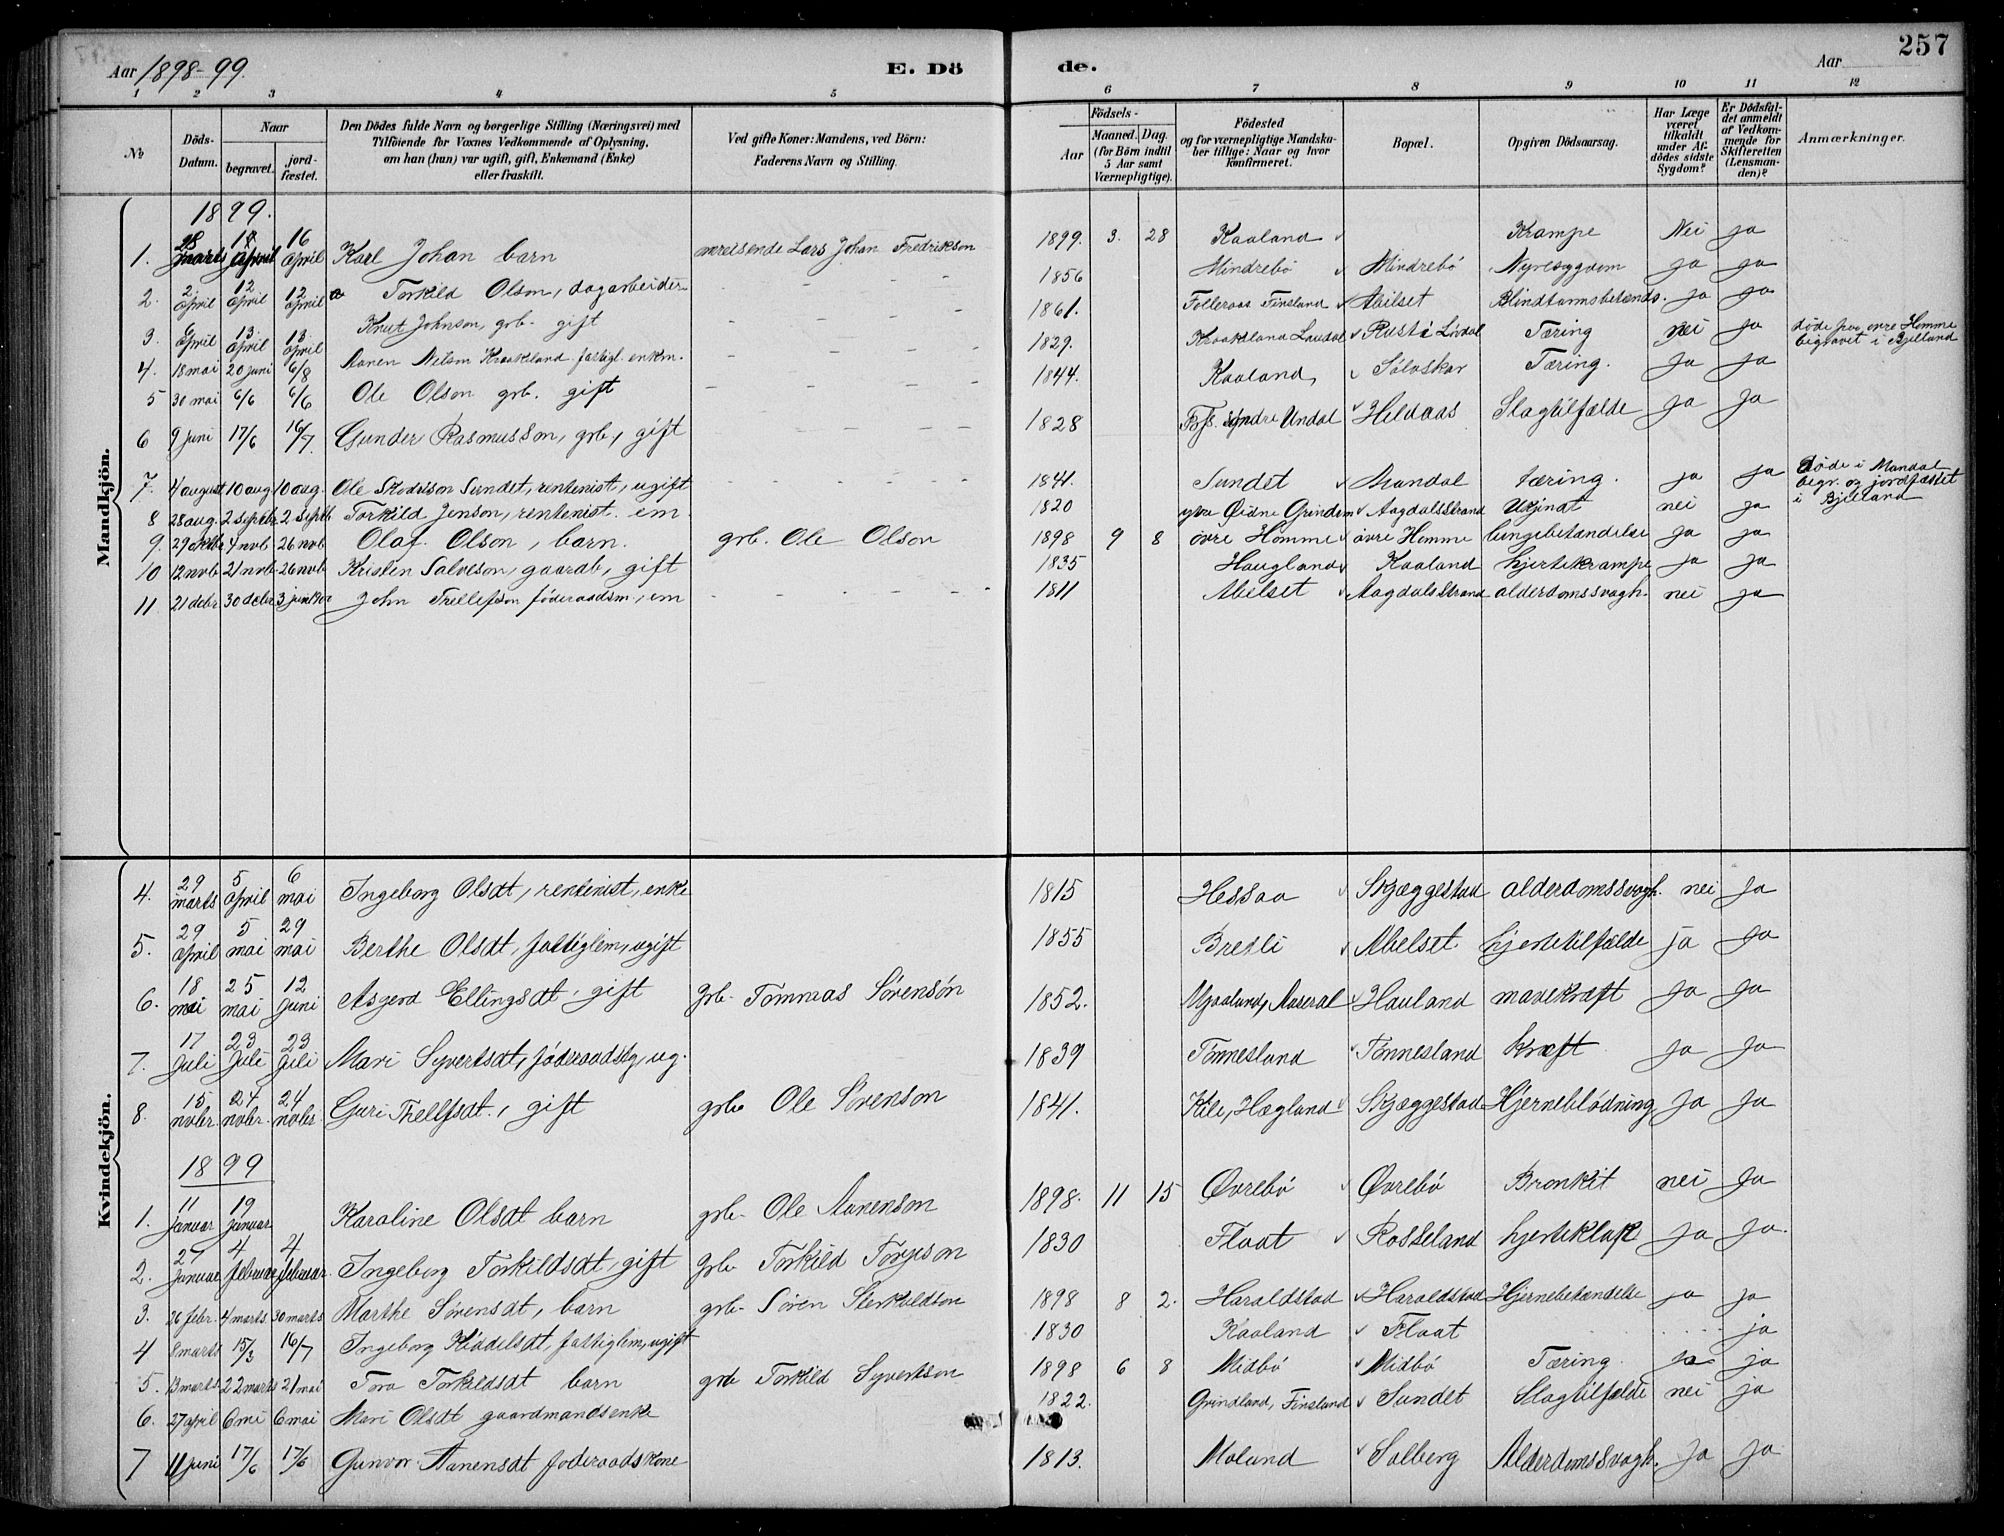 257
Aar 1898-99. E. Dö de. Aar
1 2 3 4 5 6 7 8 9 10 11 12
№ Döds-Datum. Naar begravet. jord-fæstet. Den Dödes fulde Navn og borgerlige Stilling (Næringsvei) med Tilföiende for Voxnes Vedkommende af Oplysning, om han (hun) var ugift, gift, Enkemand (Enke) eller fraskilt. Ved gifte Koner: Mandens, ved Börn: Faderens Navn og Stilling. Födsels- Aar Maaned. Dag. (for Börn indtil 5 Aar samt Værnepligtige). Födested og for værnepligtige Mandskaber tillige: Naar og hvor konfirmeret. Bopæl. Opgiven Dödsaarsag. Har Læge været tilkaldt under Afdödes sidste Sygdom? Er Dödsfaldet anmeldt af Vedkommende for Skifteretten (Lensmanden)? Anmærkninger.
Mandkjön.
1899.
1. 28 marts April 16 April Karl Johan barn omreisende Lars Johan Fredrikson 1899. 3. 28 Kaaland Krampe Nei ja
2. 2 April 12 April 12 April Torkild Olson, dagarbeider 1856 Mindrebö Mindrebö Nyresygdom ja ja
3. 6 April 13 April 13 April Knut Johnson, grb. gift 1861. Folleraas Finsland Abilset Blindtarmsbetænds. ja ja
4. 18 mai 20 juni 6/8 Aanen Nilson Kraakland fattigl. enkm. 1829. Kraakland Laudal Rust i Lövdal Tæring nei ja döde paa øvre Homme begravet i Bjelland
5 30 mai 6/6 6/6 Ole Olson grb. gift 1844. Kaaland Sølvskar Tæring. ja ja
6 9 juni 17/6 16/7. Gunder Rasmusson, grb., gift 1828 Søndre Undal Heldaas Slagtilfælde ja ja
7. 4 august 10 aug 10 aug. Ole Sundet, rentenist, ugift 1841. Sundet Mandal tæring. ja ja Døde i Mandal begr. og jordfæstet i Bjelland
8 28 aug. 2 septbr 2 septb Torkild Jenson, rentenist. em. 1820 yvre Øidne Grindem Aagdalsstrand Ukjendt nei ja
9. 29 oktbr 4 novb 26 nvb. Olaf Olson, barn. grb. Ole Olson 1898 9 8 øvre Homme øvre Homme lungebetændelse ja ja
10 12 nvb 21 nvb. 26 nvb. Kristen Salveson, gaardb, gift 1835 Haugland Kaaland hjertekrampe ja ja
11 21 debr 30 debr John Trellefson föderaadsm., em 1811 Abilset Aagdalsstrand alderdomssvagh. nei ja
Kvindekjön.
4. 29 marts 5 april 6 mai Ingeborg Olsdt, rentenist, enke 1815 Hessaa Skjæggestad alderdomssvagh. nei ja
5. 29 April 5 mai 29 mai Berthe Olsdt, fattiglem, ugift 1855 Bretli Abelset hjertetilfælde ja ja
6. 18 mai 25 mai 12 Juni Asgerd Ellingsdt, gift grb. Tomas Sørensön 1852. Aaseral Hauland mavekræft ja ja
7. 17 Juli 23 Juli 23 Juli Mari Syvertsdt, föderaadstg, ug. 1839 Tønnesland Tønnesland Kræft ja ja
8. 15 nvbr 24 nvbr. 24 nvbr. Guri Trellfsdt., gift grb. Ole Sörenson 1841. Kile, Hægland Skjæggestad Hjerneblödning ja ja
1899
1. 11 januar 19 januar Karaline Olsdt barn grb. Ole Aanenson 1898. 11 15 Øvrebö Øvrebö Bronkit nei ja
2. 27 januar 4 februar 4 februar Ingeborg Torkildsdt, gift grb. Torkild Torjeson 1830 Flaat Rosseland hjerteklap ja ja.
3. 26 febr. 4 marts 30 marts Marthe Sörensdt, barn grb. Søren Sterkoldson 1898 8 2. Haraldstad Haraldstad Hjernebetændelse ja ja
4 8 marts 15/3 16/7 Ingeborg fattiglem, ugift 1830 Kaaland Flaat ja
5. 13 marts 22 marts 21 mai Tora Torkildsdt barn grb Torkild Syvertson 1898 6 8 Midbö Midbö Tæring. ja ja
6. 27 april 6 mi 6 mai Mari Olsdt gaardmandsenke 1822. Grindland, Finsland Sundet Slagtilfælde nei ja
7 11 juni 17/6 17/6 Gunvor Aanensdt föderaadskone 1813. Moland Solberg Alderdomssvagh. ja ja